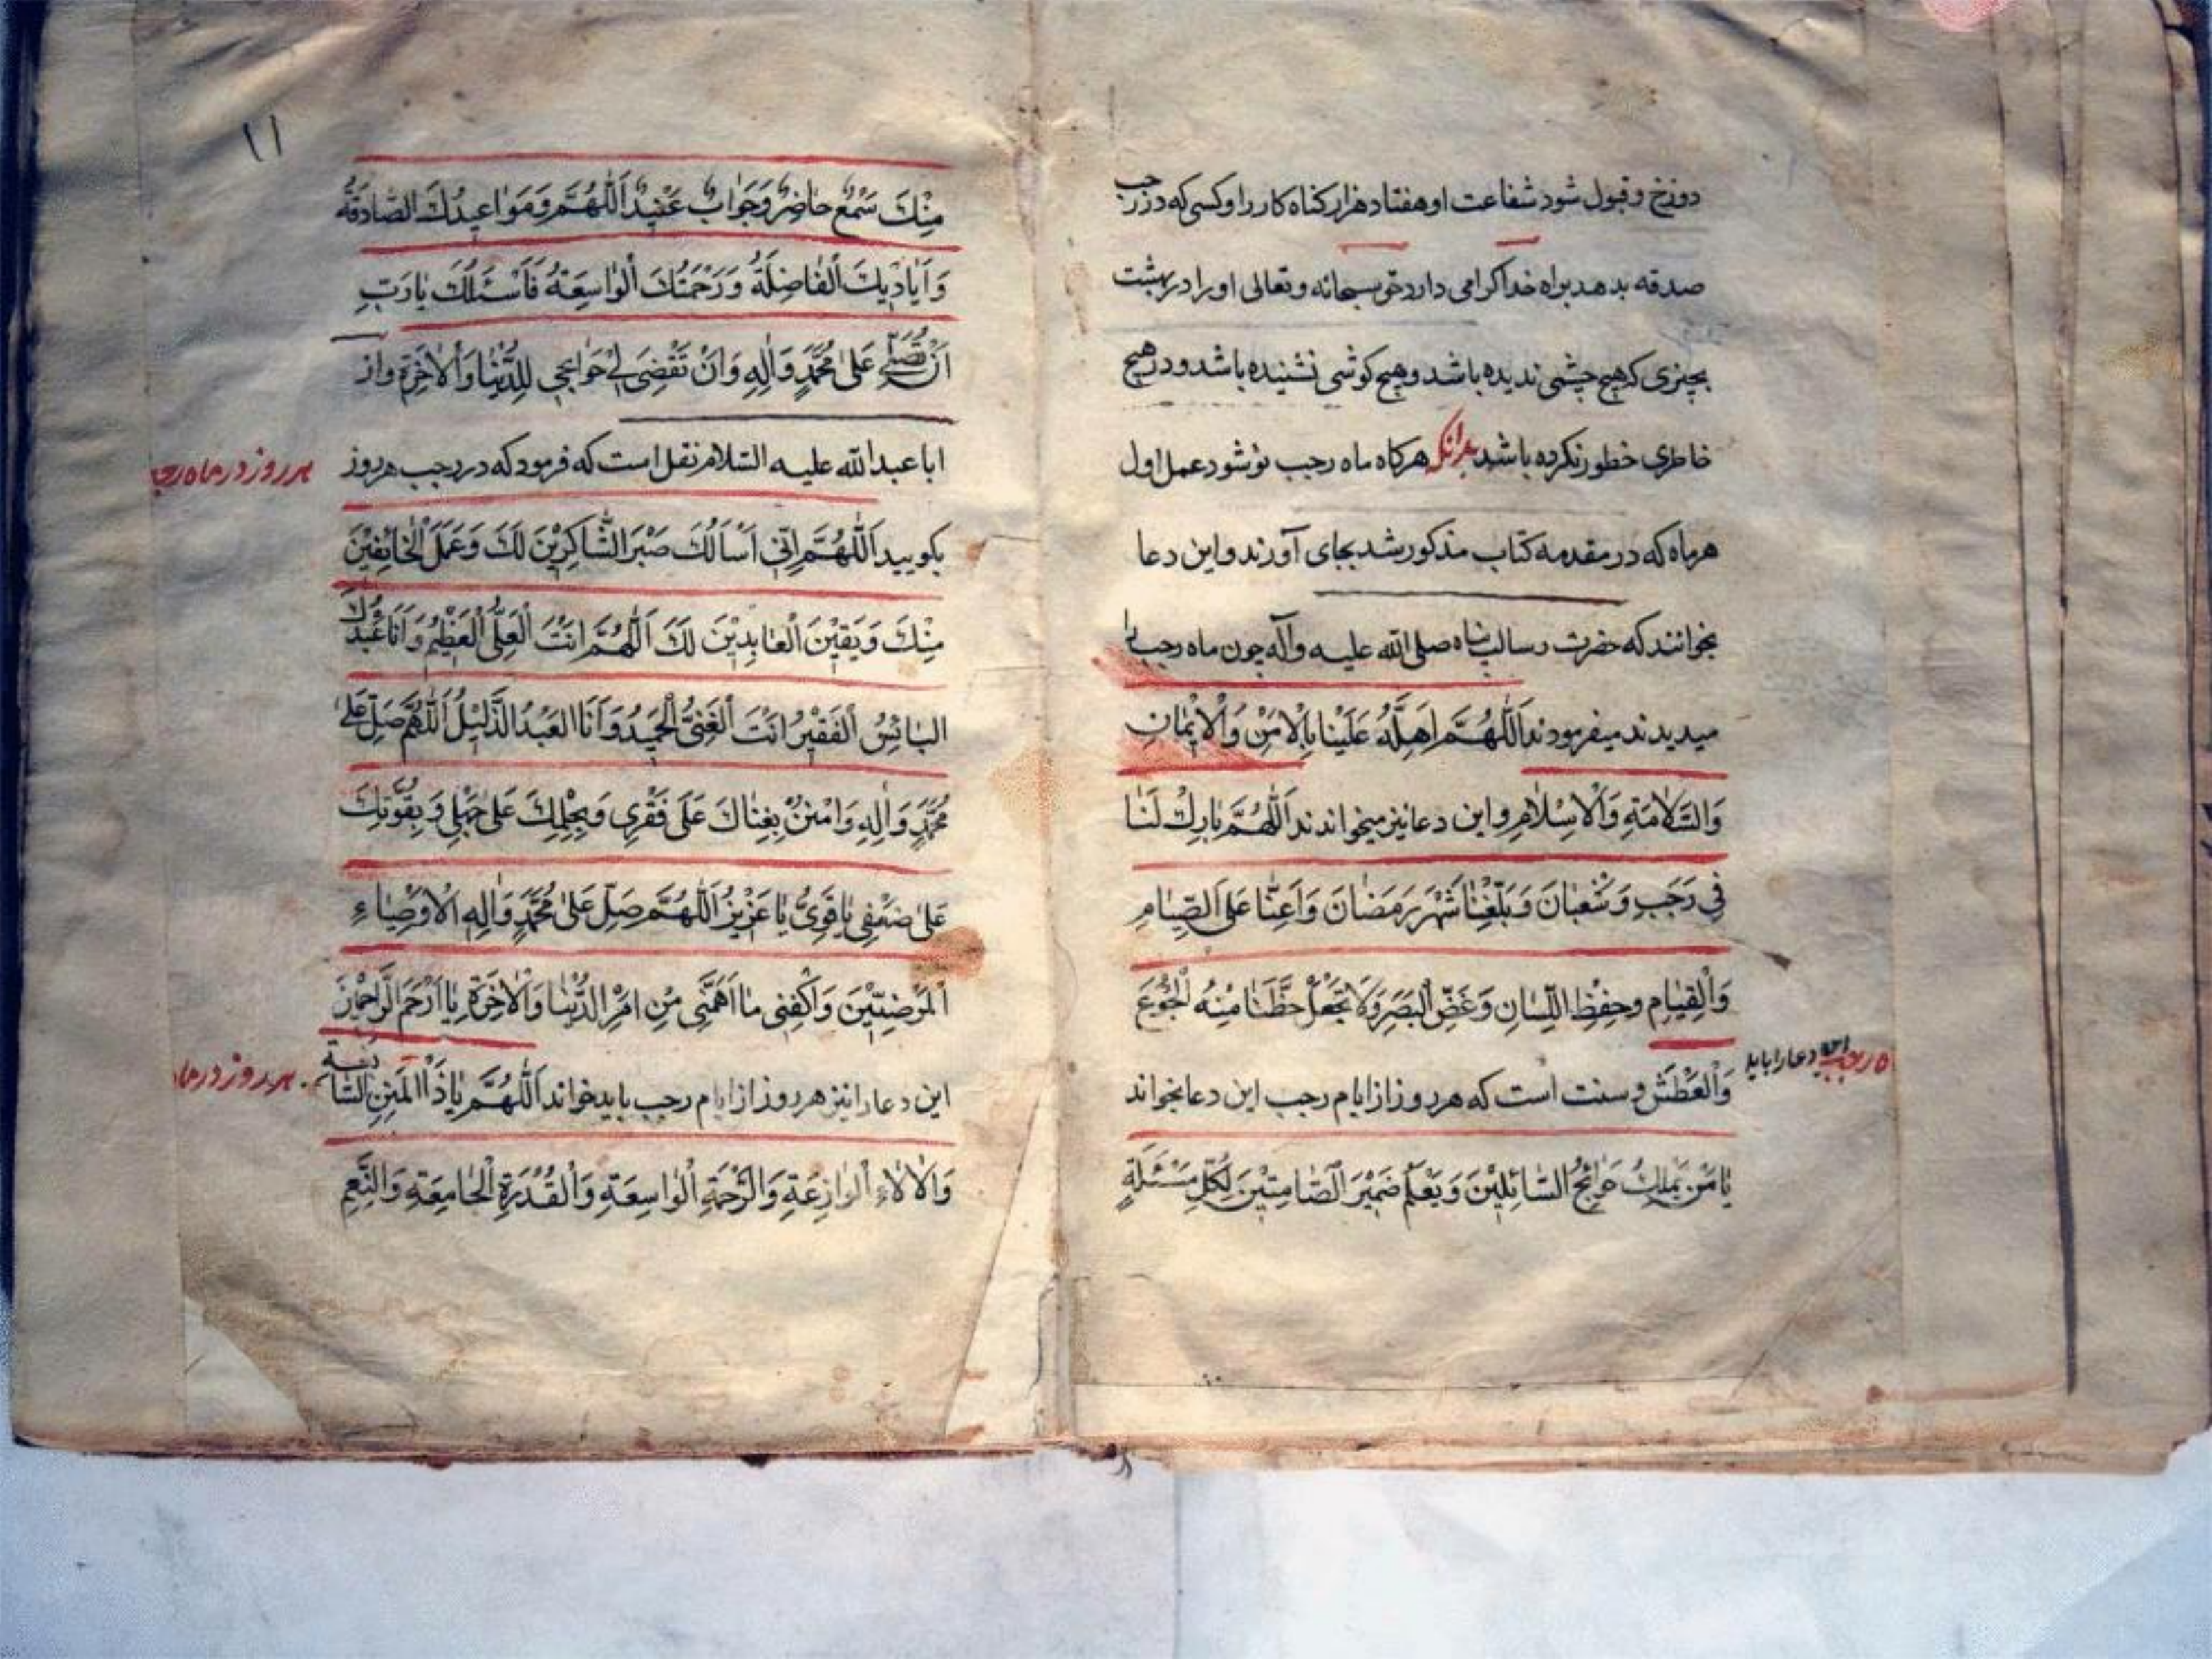 دوزخ و قبول شود شفاعت او هفتاد هزار کناه کار را و کسی که در رجب
صدقه بدهد براه خدا کرامی دارد حق سبحانه و تعالی او را در بهشت
بچیزی که هیچ چشمی ندیده باشد و هیچ کوشی نشنیده باشد و در هیچ
خاطری خطور نکرده باشد بدانکه هرکاه ماه رجب نو شود عمل اول
هر ماه که در مقدمه کتاب مذکور شد بجای آورند و این دعا
بخوانند که حضرت رسالت پناه صلی الله علیه و آله چون ماه رجب را
میدیدند میفرمودند اَللّٰهُمَّ اَهِلَّهُ عَلَیْنٰا بِالْاَمْنِ وَالْاِیْمٰانِ
وَالسَّلٰامَةِ وَالْاِسْلٰامِ و این دعا نیز میخواندند اَللّٰهُمَّ بٰارِكْ لَنٰا
فِي رَجَبٍ وَشَعْبٰانَ وَبَلِّغْنٰا شَهْرَ رَمَضٰانَ وَاَعِنّٰا عَلَی الصِّیٰامِ
وَالْقِیٰامِ وَحِفْظِ اللِّسٰانِ وَغَضِّ الْبَصَرِ وَلٰا تَجْعَلْ حَظَّنٰا مِنْهُ الْجُوْعَ
وَالْعَطَشَ و سنت است که هر روز از ایام رجب این دعا بخواند
ماه رجب این دعا را باید
یٰا مَنْ یَمْلِكُ حَوٰائِجَ السّٰائِلِیْنَ وَیَعْلَمُ ضَمِیْرَ الصّٰامِتِیْنَ لِکُلِّ مَسْئَلَةٍ
١١
مِنْكَ سَمْعٌ حٰاضِرٌ وَجَوٰابٌ عَتِیْدٌ اَللّٰهُمَّ وَمَوٰاعِیْدُكَ الصّٰادِقَةُ
وَاَیٰادِیْكَ الْفٰاضِلَةُ وَرَحْمَتُكَ الْوٰاسِعَةُ فَاَسْئَلُكَ یٰا رَبِّ
اَنْ تُصَلِّيَ عَلیٰ مُحَمَّدٍ وَاٰلِهِ وَاَنْ تَقْضِیَ لِي حَوٰائِجِي لِلدُّنْیٰا وَالْاٰخِرَةِ و از
ابا عبدالله علیه السلام نقل است که فرمود که در رجب هر روز
هر روز در ماه رجب
بکویید اَللّٰهُمَّ اِنِّي اَسْاَلُكَ صَبْرَ الشّٰاکِرِیْنَ لَكَ وَعَمَلَ الْخٰائِفِیْنَ
مِنْكَ وَیَقِیْنَ الْعٰابِدِیْنَ لَكَ اَللّٰهُمَّ اَنْتَ الْعَلِيُّ الْعَظِیْمُ وَاَنَا عَبْدُكَ
الْبٰائِسُ الْفَقِیْرُ اَنْتَ الْغَنِيُّ الْحَمِیْدُ وَاَنَا الْعَبْدُ الذَّلِیْلُ اَللّٰهُمَّ صَلِّ عَلیٰ
مُحَمَّدٍ وَاٰلِهِ وَامْنُنْ بِغِنٰاكَ عَلیٰ فَقْرِي وَبِحِلْمِكَ عَلیٰ جَهْلِي وَبِقُوَّتِكَ
عَلیٰ ضَعْفِي یٰا قَوِيُّ یٰا عَزِیْزُ اَللّٰهُمَّ صَلِّ عَلیٰ مُحَمَّدٍ وَاٰلِهِ الْاَوْصِیٰاءِ
الْمَرْضِیِّیْنَ وَاکْفِنِي مٰا اَهَمَّنِي مِنْ اَمْرِ الدُّنْیٰا وَالْاٰخِرَةِ یٰا اَرْحَمَ الرّٰاحِمِیْنَ
این دعا را نیز هر روز از ایام رجب باید خواند اَللّٰهُمَّ یٰا ذَا الْمِنَنِ السّٰابِغَةِ
هر روز در ماه
وَالْاٰلٰاءِ الْوٰازِعَةِ وَالرَّحْمَةِ الْوٰاسِعَةِ وَالْقُدْرَةِ الْجٰامِعَةِ وَالنِّعَمِ